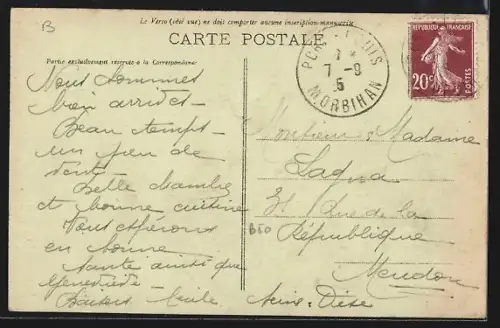 B
Le Verso (côté vue) ne doit comporter aucune inscription manuscrite
CARTE POSTALE
Partie exclusivement réservée à la Correspondance
PORT-LOUIS
7-9
MORBIHAN
REPUBLIQUE FRANCAISE
20c
POSTES
Nous sommes
bien arrivés -
Beau temps -
un peu de
vent -
Belle chambre
et bonne cuisine
Vous espérons
en bonne
santé ainsi que
Geneviève -
Baisers Cécile
Monsieur & Madame
31 Rue de la
République
Meudon
Seine & Oise
B50